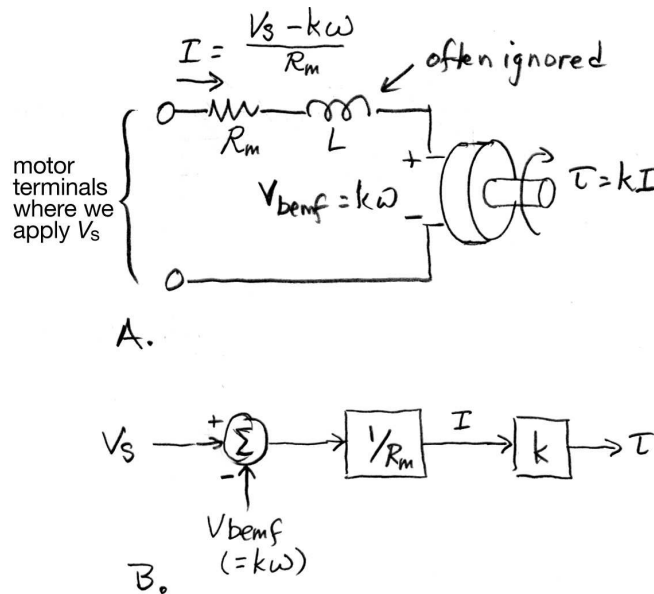 I = (Vs - kω) / Rm
often ignored
Rm
L
motor
terminals
where we
apply Vs
+
Vbemf = kω
-
τ = kI
A.
Vs
+
Σ
-
1/Rm
I
k
τ
Vbemf
(= kω)
B.